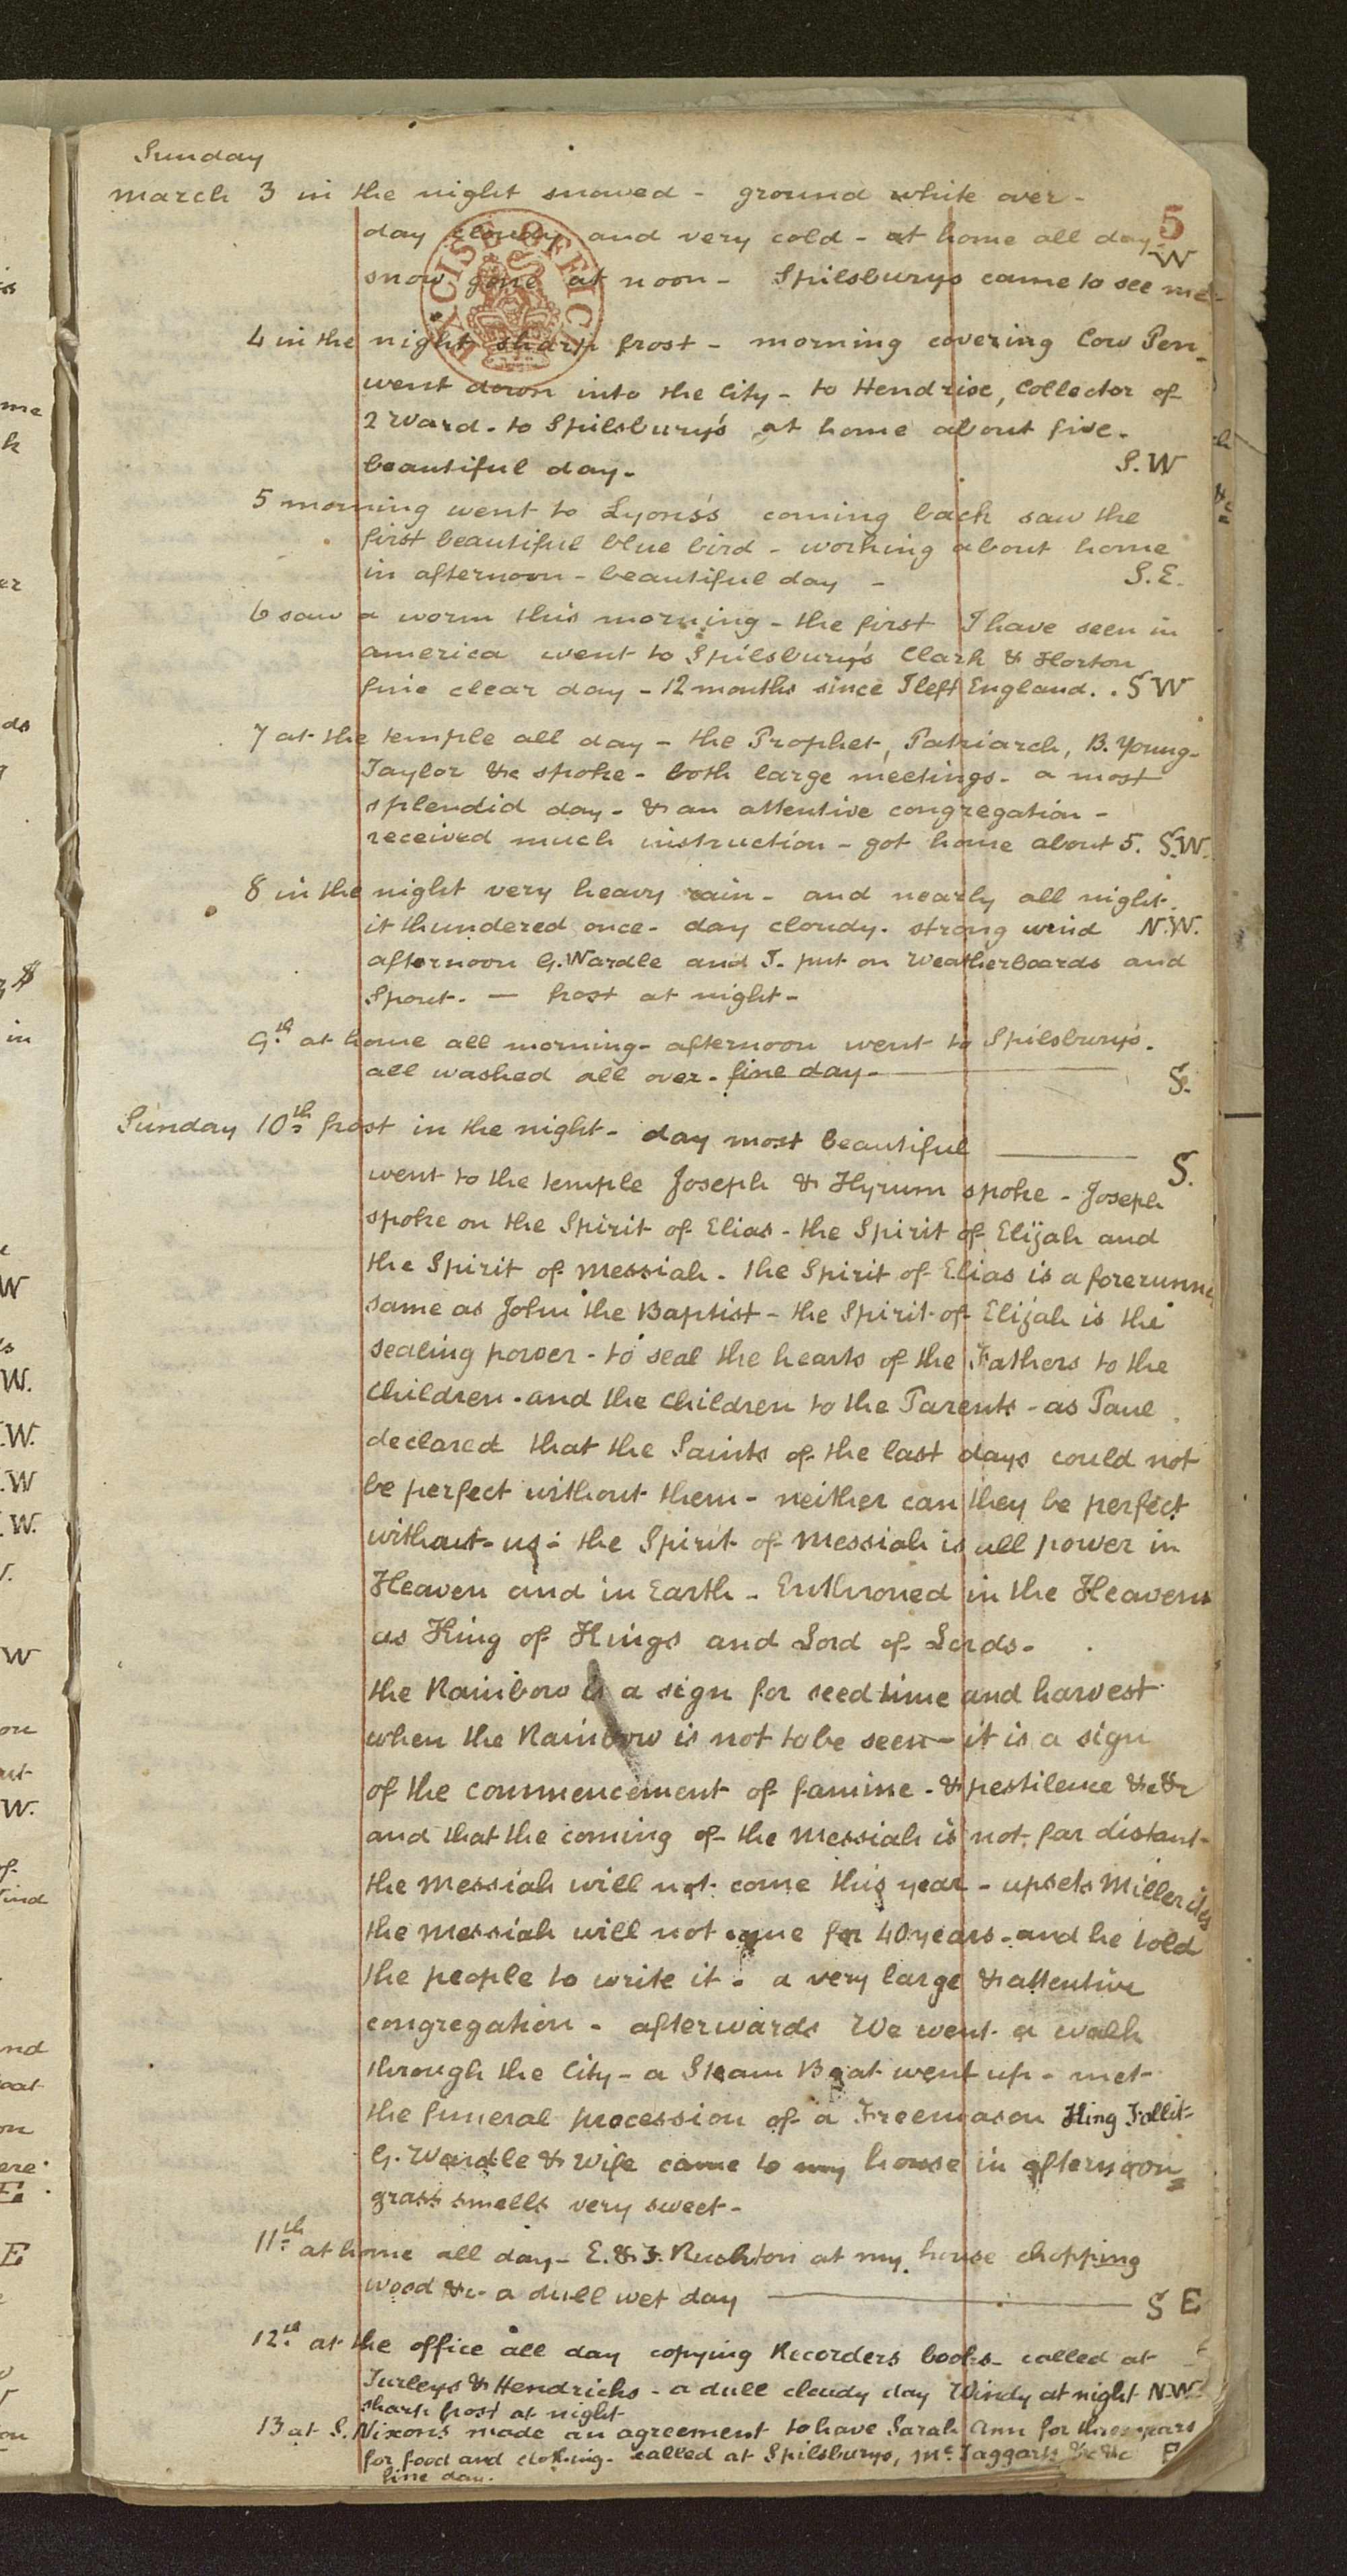 Sunday
March 3 in the night snowed - ground white over -
5
day cloudy and very cold - at home all day - W
snow gone at noon - Spilsburys came to see me -
EXCISE OFFICE
4 in the night sharp frost - morning covering Cow Pen -
went down into the City - to Hendrixe, Collector of
2 Ward - to Spilsbury's at home about five -
beautiful day - S.W
5 morning went to Lyons's coming back saw the
first beautiful blue bird - working about home
in afternoon - beautiful day - S.E.
6 saw a worm this morning - the first I have seen in
america went to Spilsbury's Clark & Horton
fine clear day - 12 months since I left England. . S W
7 at the temple all day - the Prophet, Patriarch, B. Young -
Taylor &c spoke - both large meetings - a most
splendid day - & an attentive congregation -
received much instruction - got home about 5. S.W.
8 in the night very heavy rain - and nearly all night.
it thundered once - day cloudy. strong wind N.W.
afternoon G. Wardle and I. put on Weatherboards and
Spout. — frost at night -
9.th at home all morning - afternoon went to Spilsbury's.
all washed all over. fine day - S.
Sunday 10th frost in the night - day most beautiful S.
went to the temple Joseph & Hyrum spoke - Joseph
spoke on the Spirit of Elias - the Spirit of Elijah and
the Spirit of Messiah. the Spirit of Elias is a forerunner
same as John the Baptist - the Spirit of Elijah is the
sealing power - to seal the hearts of the Fathers to the
Children. and the Children to the Parents - as Paul
declared that the Saints of the last days could not
be perfect without them - neither can they be perfect
without us: the Spirit of Messiah is all power in
Heaven and in Earth - Enthroned in the Heavens
as King of Kings and Lord of Lords -
the Rainbow is a sign for seed time and harvest
when the Rainbow is not to be seen - it is a sign
of the commencement of famine - & pestilence &c &c
and that the coming of the Messiah is not far distant -
the Messiah will not come this year - upsets Millerites
the Messiah will not come for 40 years - and he told
the people to write it. a very large & attentive
congregation - afterwards We went a walk
through the City - a Steam Boat went up - met
the funeral procession of a Freemason King Follit -
G. Wardle & Wife came to my house in afternoon
grass smells very sweet -
11.th at home all day - E. & F. Rushton at my house chopping
wood &c - a dull wet day S E
12.th at the office all day copying Recorders books - called at
Turleys & Hendricks - a dull cloudy day Windy at night N.W.
sharp frost at night
13 at S. Nixons made an agreement to have Sarah Ann for three years
for food and clothing - called at Spilsburys, Mc.Taggarts &c &c E
fine day.